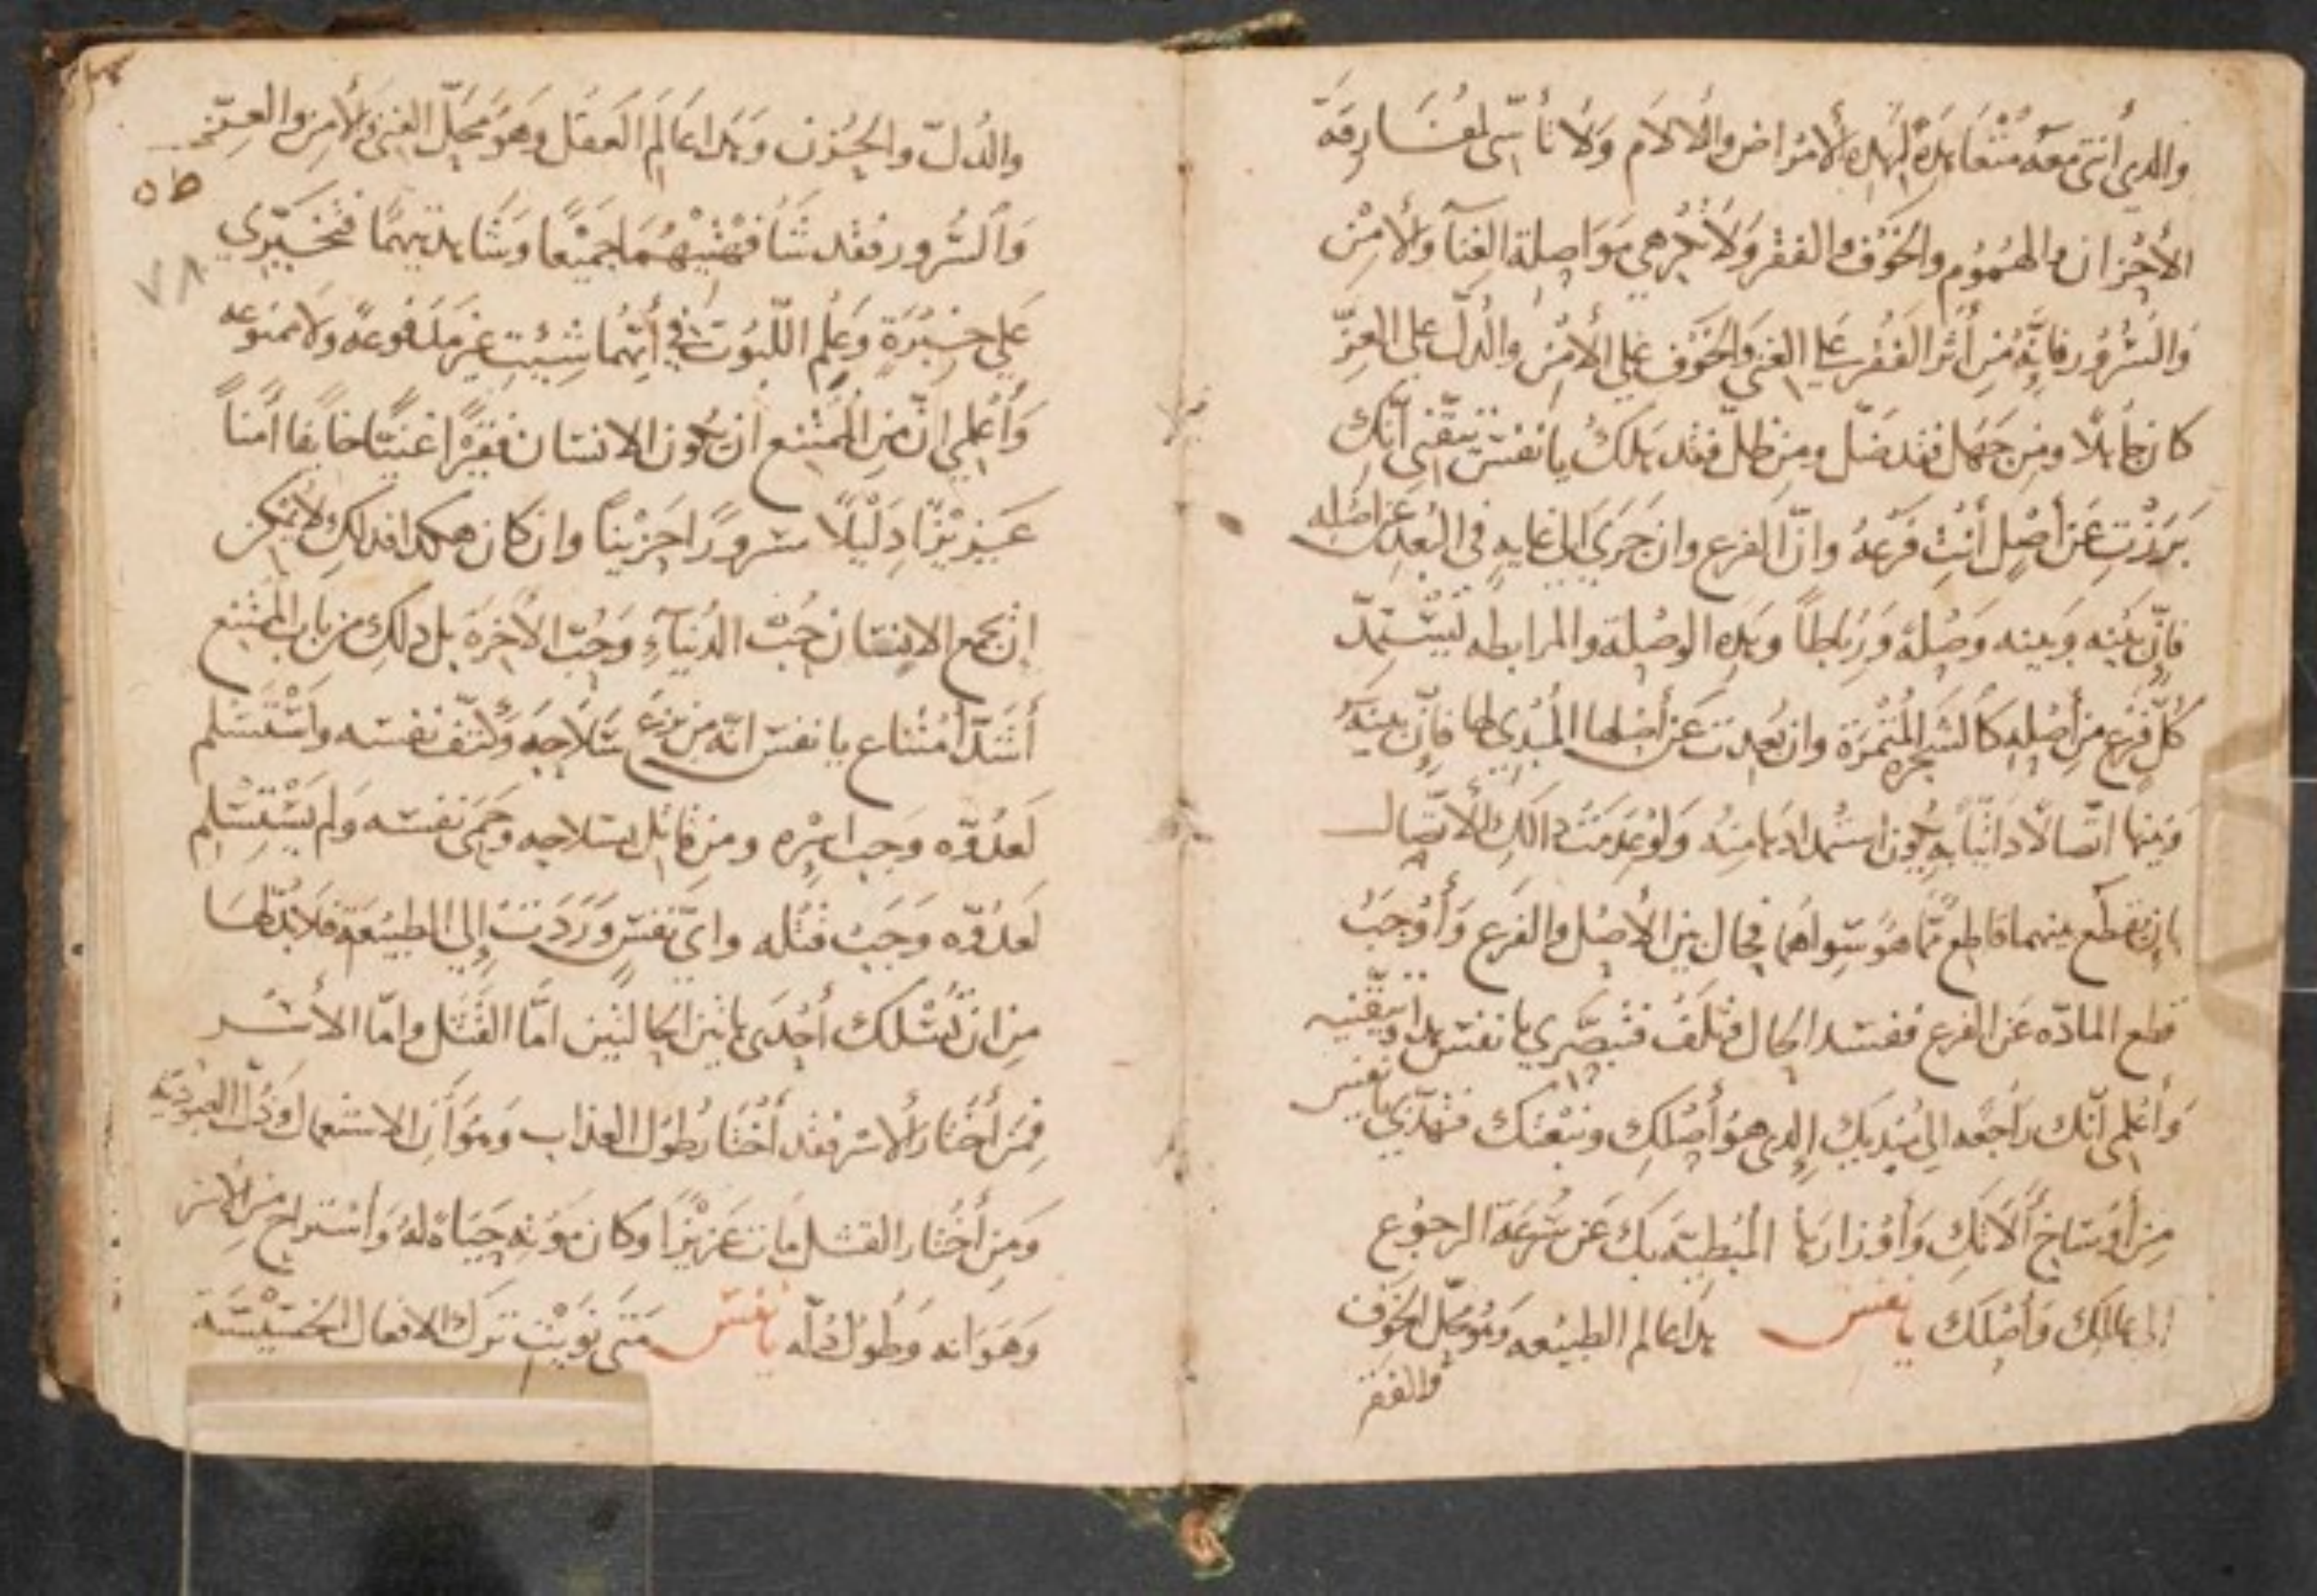 والدي أنتي معه متعاهدة لهده الأمراض والالام ولا تأسي لمفارقة
الأحزان والهموم والخوف والفقر ولا تكرهي مواصلة الغنآ والأمن
والسرور فإنه من أثر الفقر على الغنى والخوف على الأمن والدل على العز
كان جاهلا ومن جهل فقد ضل ومن ظل فقد هلك يا نفس تيقني أنك
برزت عن أصل أنت فرعه وان الفرع وان جرى الى غايه في البعد عن اصله
فإن بينه وبينه وصلة ورباطا وبهده الوصلة والمرابطه يستمد
كل فرع من أصله كالشجره المثمرة وان بعدت عن أصلها المبدي لها فإن بينه
وبينها اتصالا داتيا به يكون استمدادها منه ولو عدمت دالك الأتصال
بان يقطع بينهما قاطع مما هو سواهما فحال بين الأصل والفرع وأوجب
قطع المادة عن الفرع ففسد الحال وتلف فتبصري يا نفس هدا وتيقنيه
وأعلمي أنك راجعه الى مبديك الدي هو أصلك ونبعتك فتهدبي يا نفس
من أوساخ ألاتك وأوزارها المبطية بك عن سرعة الرجوع
الى عالمك وأصلك يا نفس هدا عالم الطبيعه وهو محل الخوف
والفقر
والدل والحزن وهدا عالم العقل وهو محل الغنى والأمن والعز
٥٥
والسرور فقد شافهتيهما جميعا وشاهدتيهما فتخيري
٧٨
على خبرة وعلم اللبوت في أيهما شيت غير مدفوعة ولا ممنوعه
وأعلمي ان من الممتنع ان يكون الانسان فقيرا غنيا خايفا أمنا
عزيزا دليلا سرورا حزينا وان كان هكدا فدلك ولا يمكن
ان يجمع الانسان حب الدنيآء وحب الأخرة بل دلك من باب الممتنع
أشد أمتناع يا نفس انه من نزع سلاحه وكتف نفسه وأستسلم
لعدوه وجب اسره ومن قاتل بسلاحه وحمى نفسه ولم يستسلم
لعدوه وجب قتله واي نفس وردت إلى الطبيعة فلا بد لها
من ان تسلك أحدى هاتين الحالتين اما القتل واما الأسر
فمن أختار الأسر فقد أختار طول العذاب وهوان الاستعمال ودل العبودية
ومن أختار القتل مات عزيزا وكان موته حياة له وأستراح من الاسر
وهوانه وطول دله يا نفس متى نويت ترك الافعال الخسيسة